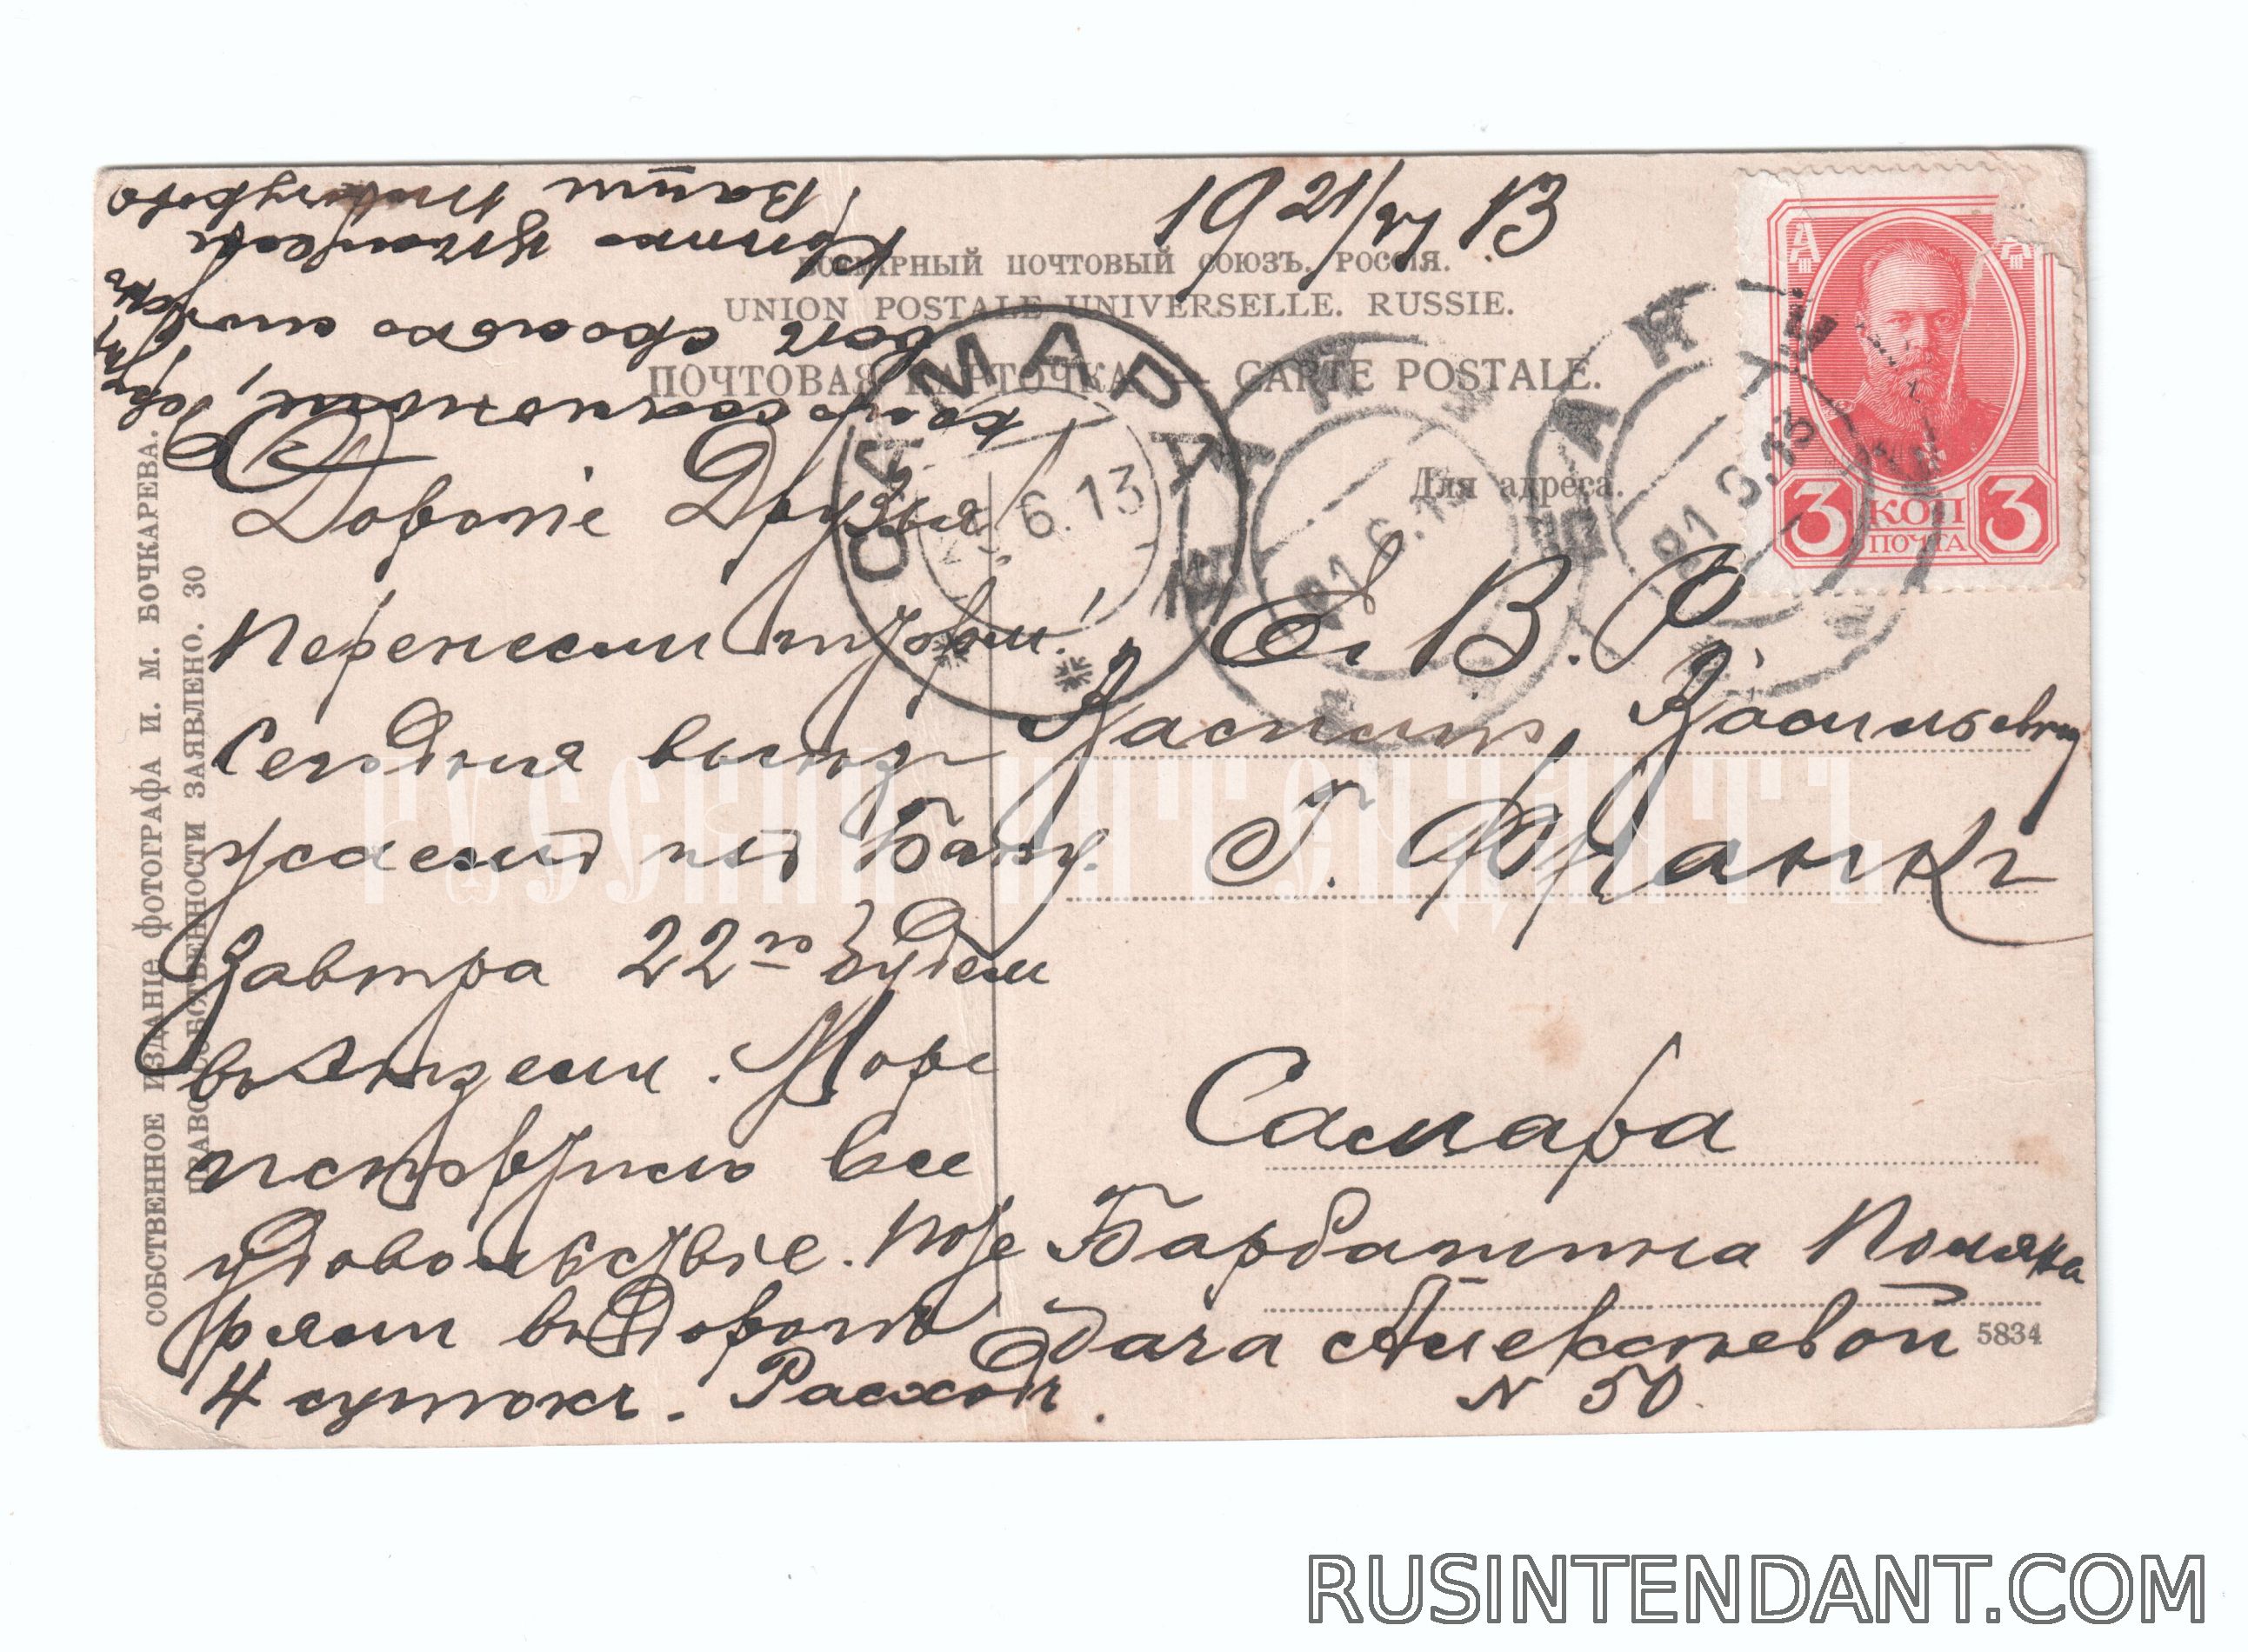 1921/VI 13
ВСЕМІРНЫЙ ПОЧТОВЫЙ СОЮЗЪ. РОССІЯ.
UNION POSTALE UNIVERSELLE. RUSSIE.
ПОЧТОВАЯ КАРТОЧКА — CARTE POSTALE.
Для адреса.
САМАРА
6.13
БАКУ
21.6.13
БАКУ
21.6.13
3 КОП 3
ПОЧТА
Дорогіе Друзья!
Перенесли
Сегодня
уѣзжаемъ изъ Баку.
Завтра 22го будем
въ Энзели. Море
исторгило все
удовольствіе. Поте
ряли въ дорогѣ
4 сутокъ. Расходъ
колоссальные,
вотъ сколько
Крѣпко цѣлуемъ
Ваши
Е. В. Р.
Василію Васильевичу
Г. Франкъ
Самара
Барбашина Поляна
дача Алексѣевой
N 50
5834
СОБСТВЕННОЕ ИЗДАНІЕ ФОТОГРАФА И. М. БОЧКАРЕВА.
ПРАВО СОБСТВЕННОСТИ ЗАЯВЛЕНО. 30
РУССКІЙ ИНТЕНДАНТЪ
RUSINTENDANT.COM